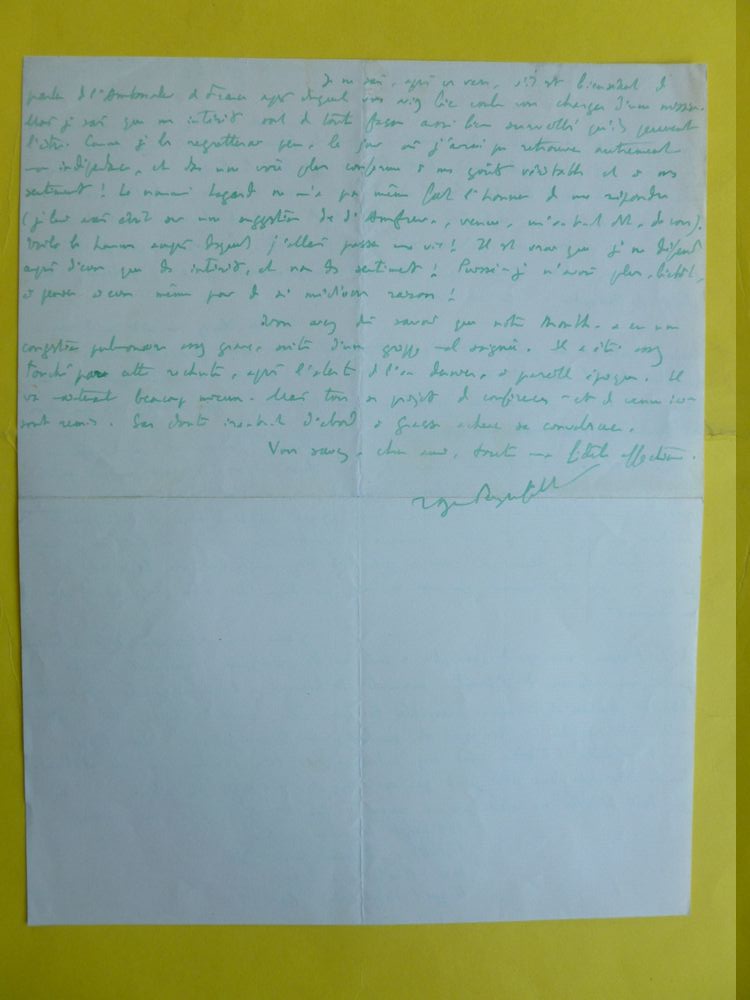 Je ne sais, après ces vers, s'il est bienséant de
parler de l'Ambassade de France auprès duquel vous avez bien voulu vous charger d'une mission.
Mais je sais que mes intérêts sont de toute façon aussi bien surveillés qu'ils peuvent
l'être. Comme je le regretterai peu, le jour où j'aurai pu retrouver autrement
mon indépendance, et dans une voie plus conforme à mes goûts véritables et à mes
sentiments ! Le nommé Legard ne m'a pas même fait l'honneur de me répondre
(je lui avais écrit sur une suggestion de venue, m'a-t-il dit, de vous).
Voilà les hommes auprès desquels j'allais passer ma vie ! Il est vrai que je ne défends
auprès d'eux que des intérêts, et non des sentiments ! Puissé-je n'avoir plus, bientôt,
à penser à eux même pour de si médiocres raisons !
Vous avez dû savoir que notre a eu une
congestion pulmonaire assez grave, suite d'une grippe mal soignée. Il a été assez
touché par cette rechute, après l'alerte de l'an dernier, à pareille époque. Il
va maintenant beaucoup mieux. Mais tous ses projets de conférences et de venue ici
sont remis. Sans doute ira-t-il d'abord à Grasse achever sa convalescence.
Vous savez, cher ami, toute ma fidèle affection.